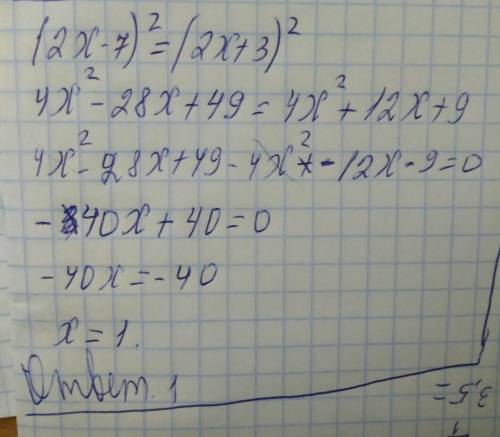 (2x-7)² = (2x+3)²
4x² - 28x + 49 = 4x² + 12x + 9
4x² - 28x + 49 - 4x² - 12x - 9 = 0
-40x + 40 = 0
-40x = -40
x = 1.
Ответ. 1
3,5=